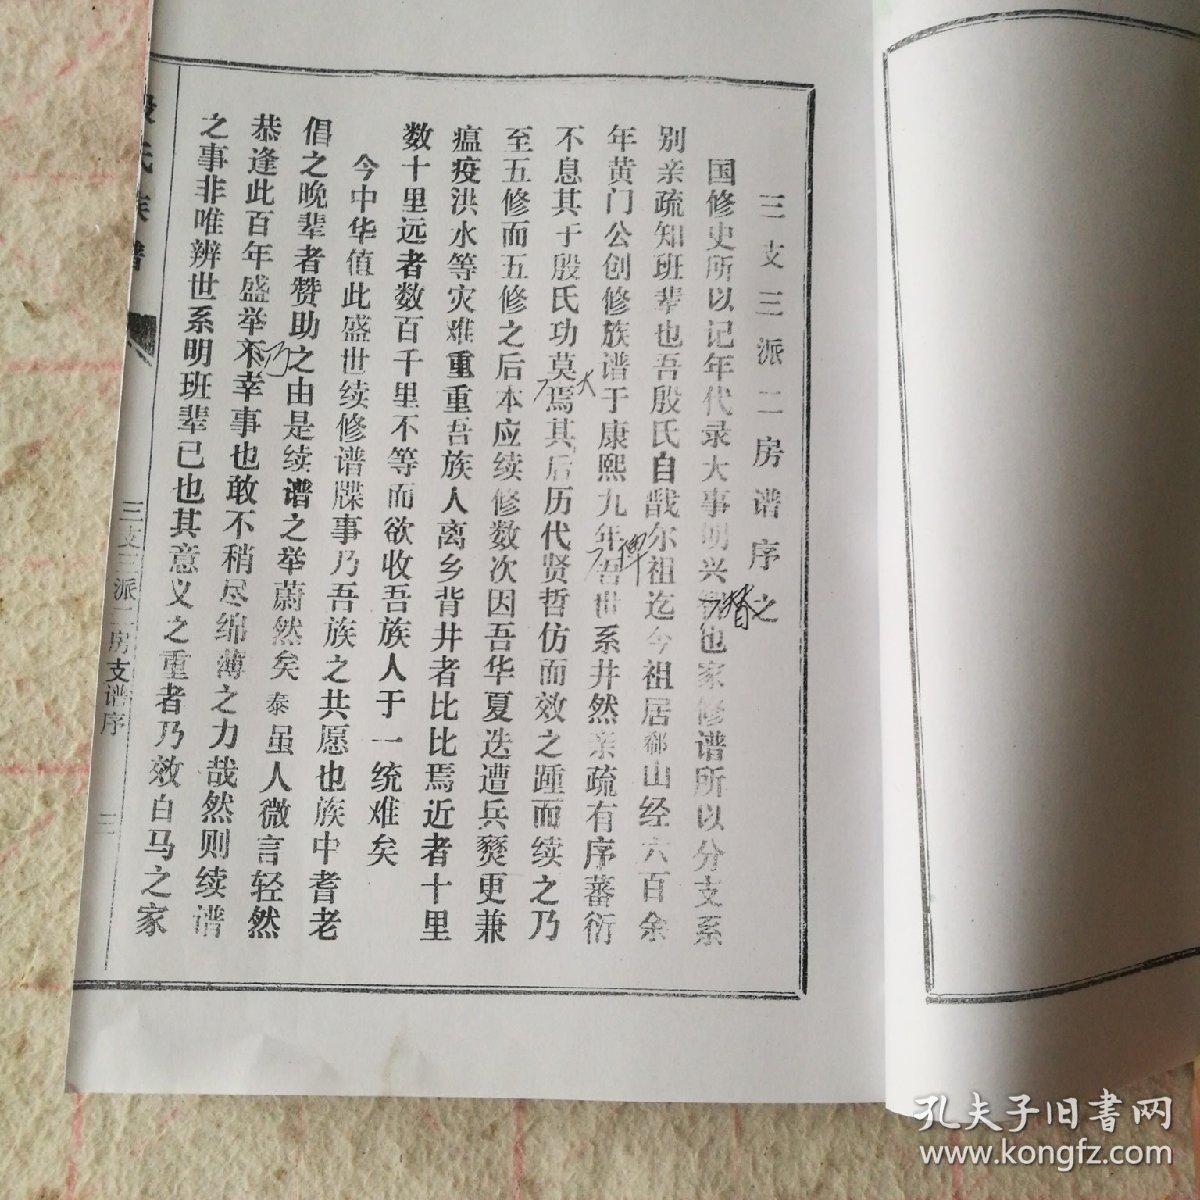 三支三派二房谱序之
国修史所以记年代录大事明兴也家修谱所以分支系
替
别亲疏知班辈也吾殷氏自戬尔祖迄今祖居郗山经六百余
年黄门公创修族谱于康熙九年吾世系井然亲疏有序蕃衍
俾
不息其于殷氏功莫焉其后历代贤哲仿而效之踵而续之乃
大
至五修而五修之后本应续修数次因吾华夏迭遭兵燹更兼
瘟疫洪水等灾难重重吾族人离乡背井者比比焉近者十里
数十里远者数百千里不等而欲收吾族人于一统难矣
今中华值此盛世续修谱牒事乃吾族之共愿也族中耆老
倡之晚辈者赞助之由是续谱之举蔚然矣泰虽人微言轻然
恭逢此百年盛举不幸事也敢不稍尽绵薄之力哉然则续谱
乃
之事非唯辨世系明班辈已也其意义之重者乃效白马之家
殷氏族谱
三支三派二房支谱序
三
孔夫子旧书网
www.kongfz.com